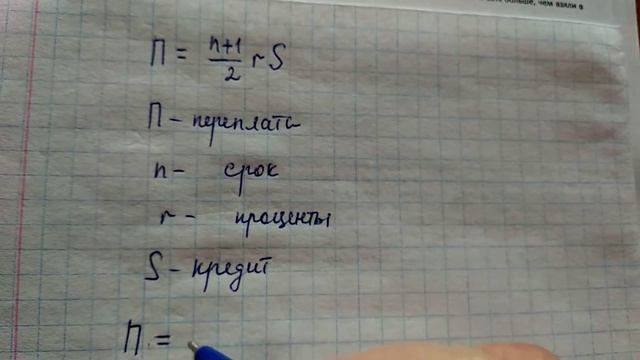 чем взяли в
П = n+1/2 rS
П – переплата
n – срок
r – проценты
S – кредит
П =